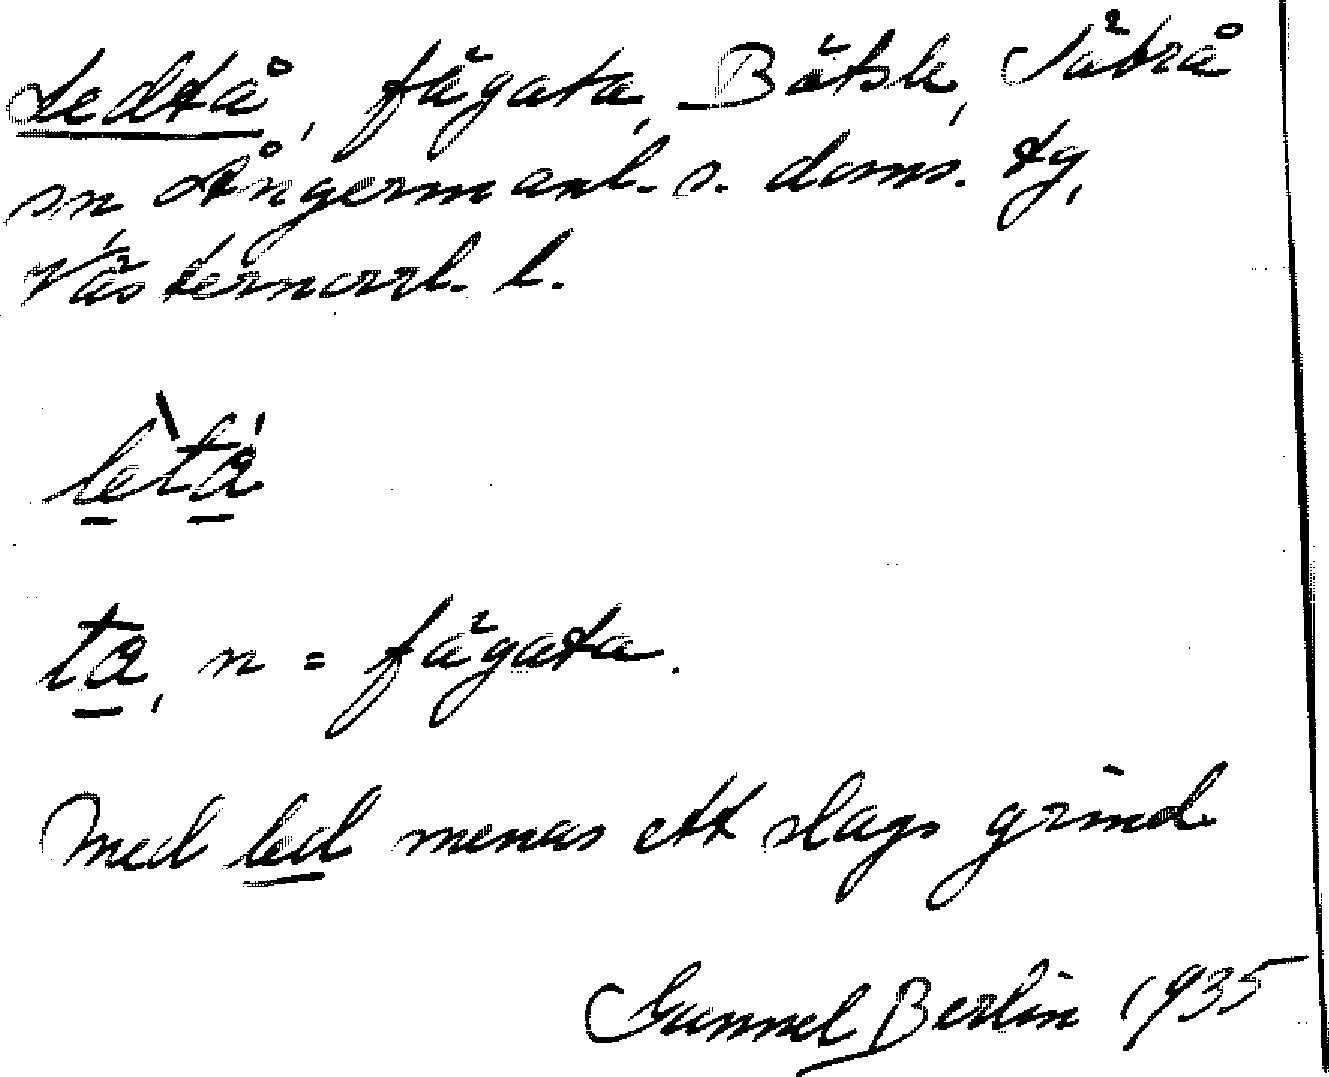 Ledtå, fägata, Bätsle, Säbrå
sn, Ångermanl. s. doms. tg,
Västernorrl. l.
lètá
ta, n = fägata.
Med led menas ett slags grind.
Gunnel Berlin 1935